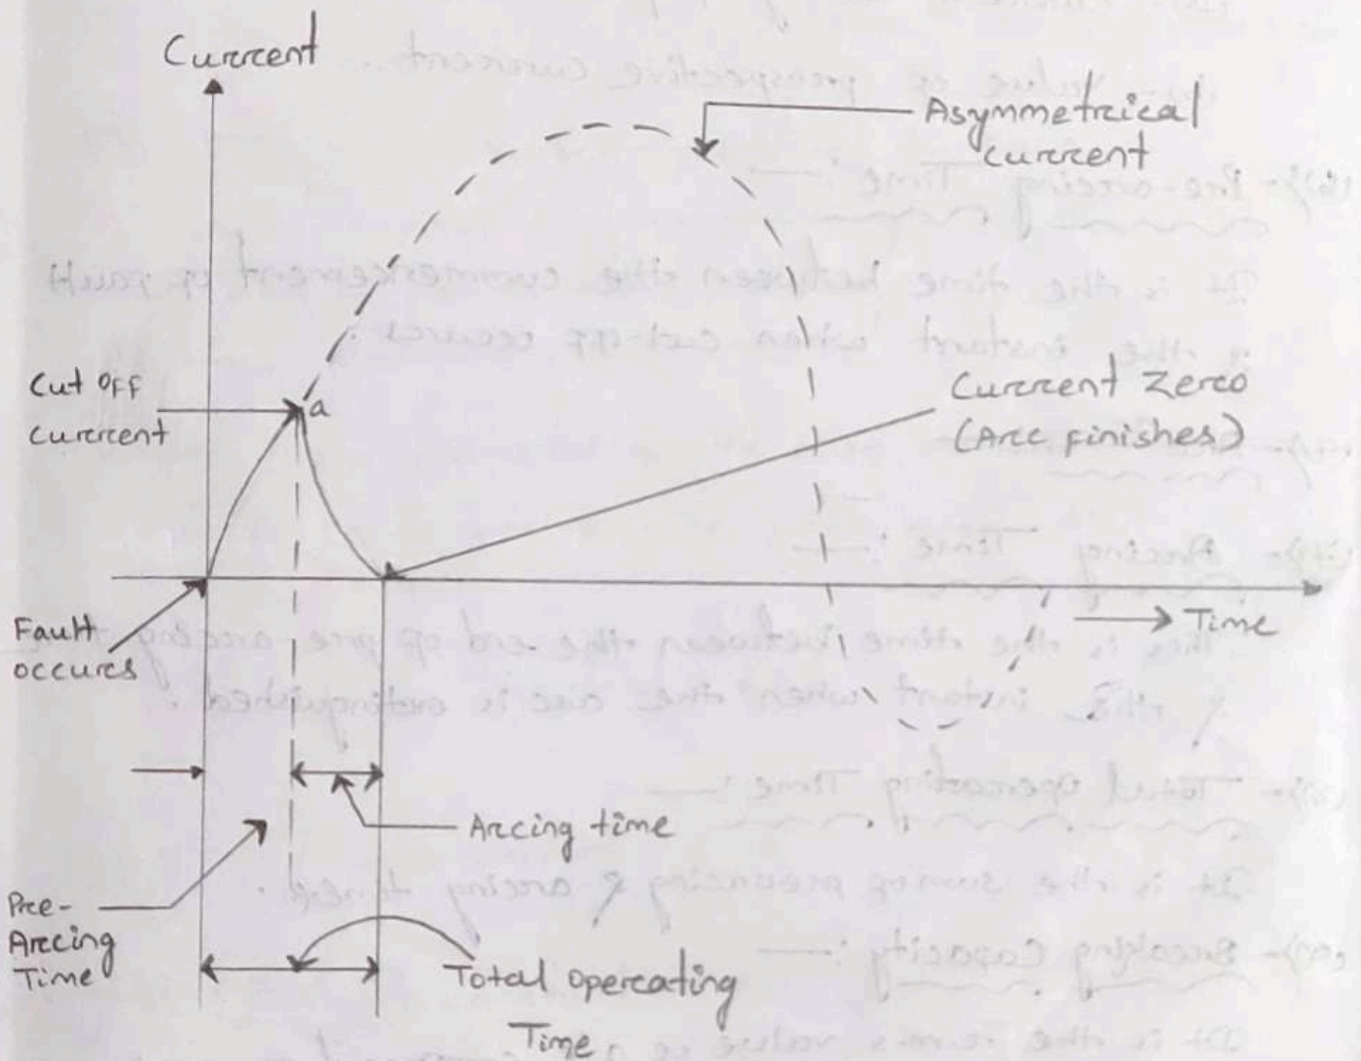 Current
Asymmetrical
current
Cut OFF
current
a
Current Zero
(Arc finishes)
Fault
occures
Time
Arcing time
Pre-
Arcing
Time
Total operating
Time